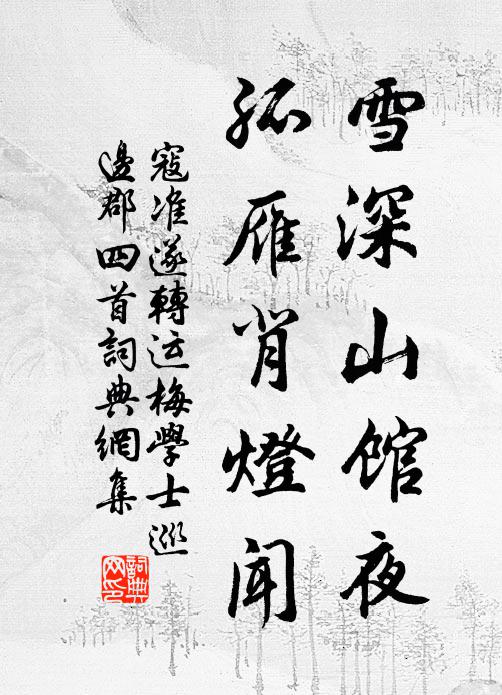 雪深山館夜
孤雁背燈聞
寇准遂轉运梅學士巡
邊郡四首詞典網集
詞典
网印